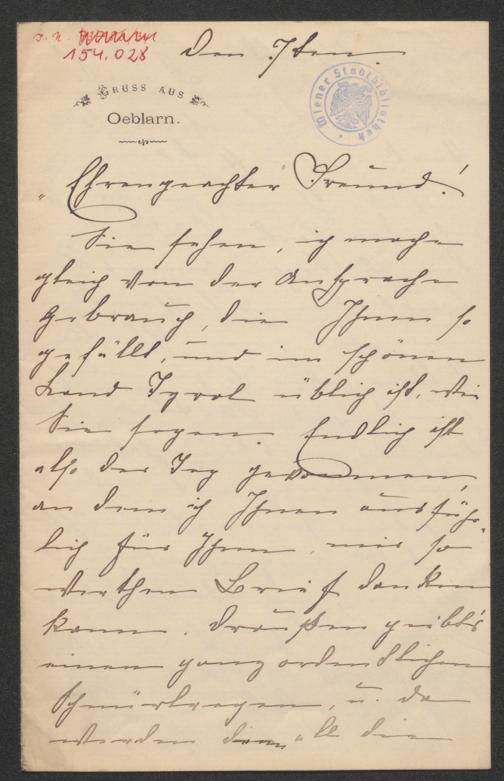 J. N.
154.028
Den 7ten.
GRUSS AUS
Oeblarn.
Wiener Stadtbibliothek
„Ehrengeachter Freund!
Sie sehen, ich mache
gleich von der Ansprache
Gebrauch, die Ihnen so
gefällt, und im schönen
Land Tyrol üblich ist, wie
Sie sagen. Endlich ist
also der Tag gekommen,
an dem ich Ihnen ausführ-
lich für Ihren, mir so
werthen Brief danken
kann. Draußen geibt's
einen ganz ordentlichen
Schnürlregen, u. da
werden all die